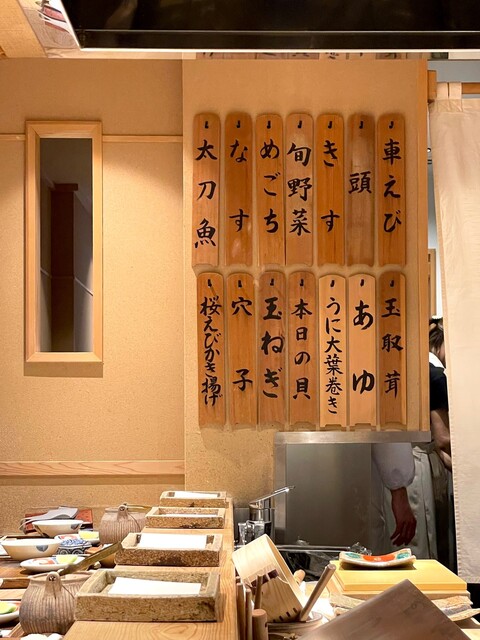 車えび
頭
きす
旬野菜
めごち
なす
太刀魚
玉取茸
あゆ
うに大葉巻き
本日の貝
玉ねぎ
穴子
桜えびかき揚げ